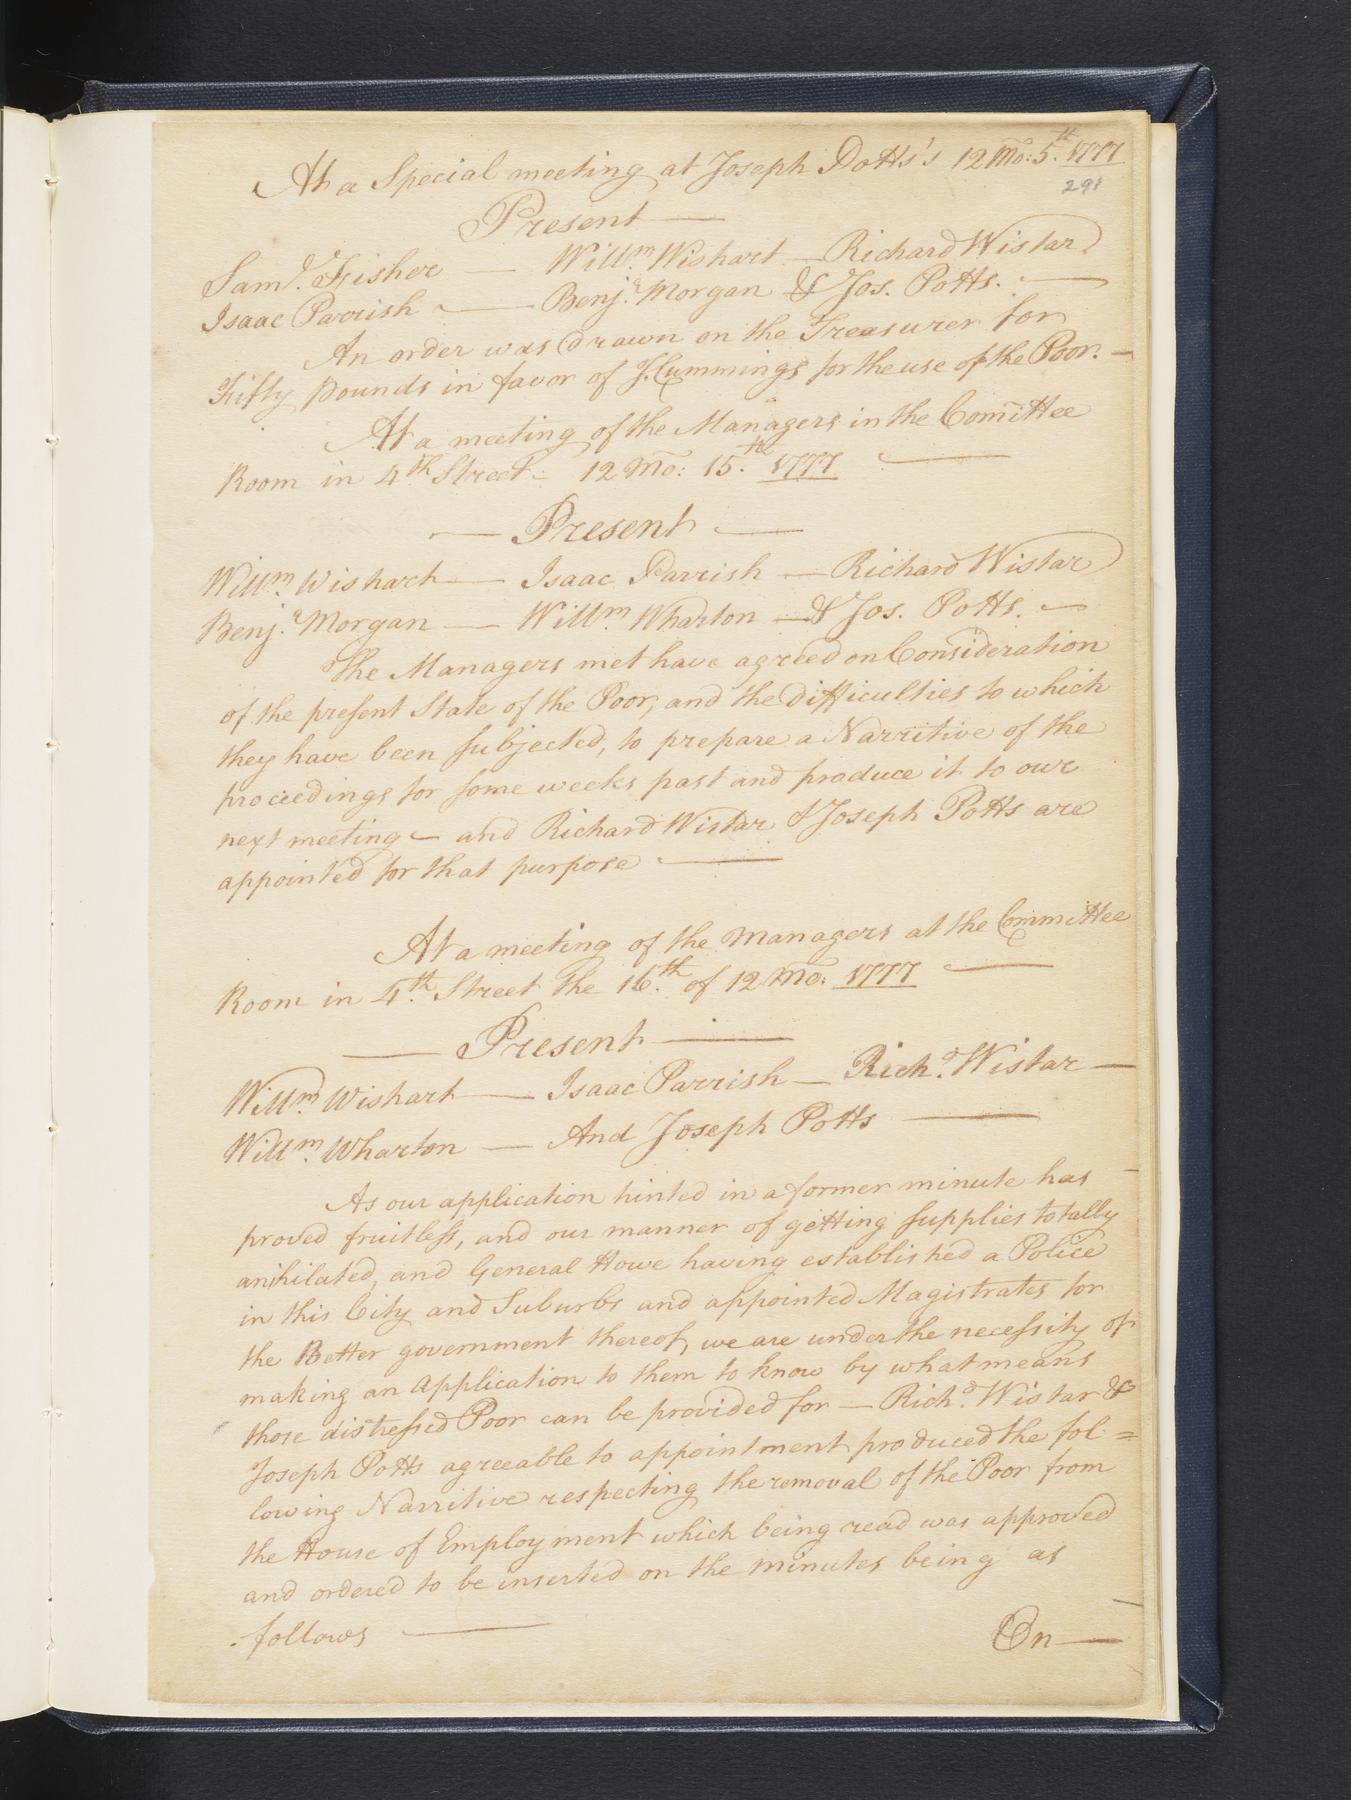 At a Special meeting at Joseph Potts's 12 Mo: 5th. 1777
291
Present —
Saml. Fisher — Willm. Wishart — Richard Wistar
Isaac Parrish — Benj.a Morgan & Jos. Potts. —
An order was drawn on the Treasurer for
Fifty Pounds in favor of J. Cummings for the use of the Poor. —
At a meeting of the Managers in the Comittee
Room in 4th Street - 12 Mo: 15th. 1777 —
— Present —
Willm. Wishart — Isaac Parrish — Richard Wistar
Benj.a Morgan — Willm. Wharton — & Jos. Potts. —
The Managers met have agreed on Consideration
of the present State of the Poor, and the difficulties to which
they have been subjected, to prepare a Narritive of the
proceedings for some weeks past and produce it to our
next meeting — and Richard Wistar & Joseph Potts are
appointed for that purpose —
At a meeting of the Managers at the Committee
Room in 4th. Street the 16th. of 12 Mo: 1777 —
— Present —
Willm. Wishart — Isaac Parrish — Richd. Wistar —
Willm. Wharton — And Joseph Potts —
As our application hinted in a former minute has
proved fruitless, and our manner of getting supplies totally
anihilated, and General Howe having established a Police
in this City and Suburbs and appointed Magistrates for
the Better government thereof, we are under the necessity of
making an Application to them to know by what means
those distressed Poor can be provided for — Richd. Wistar &
Joseph Potts agreeable to appointment produced the fol=
lowing Narritive respecting the removal of the Poor from
the House of Employment which being read was approved
and ordered to be inserted on the minutes being as
follows —
On —